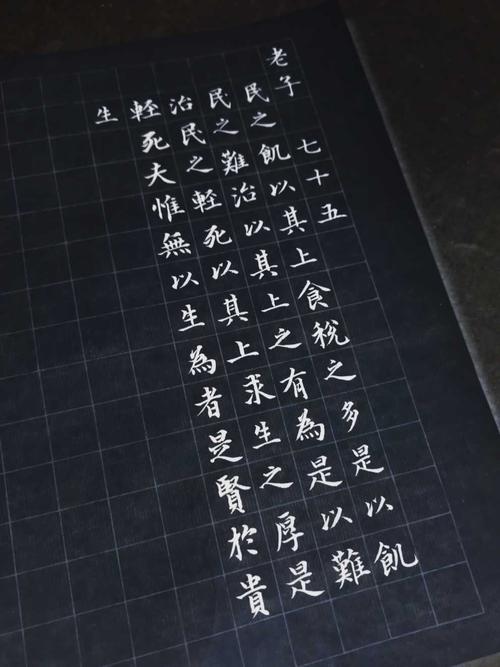 老子 七十五
民之飢以其上食稅之多是以飢
民之難治以其上之有為是以難
治民之輕死以其上求生之厚是
輕死夫惟無以生為者是賢於貴
生